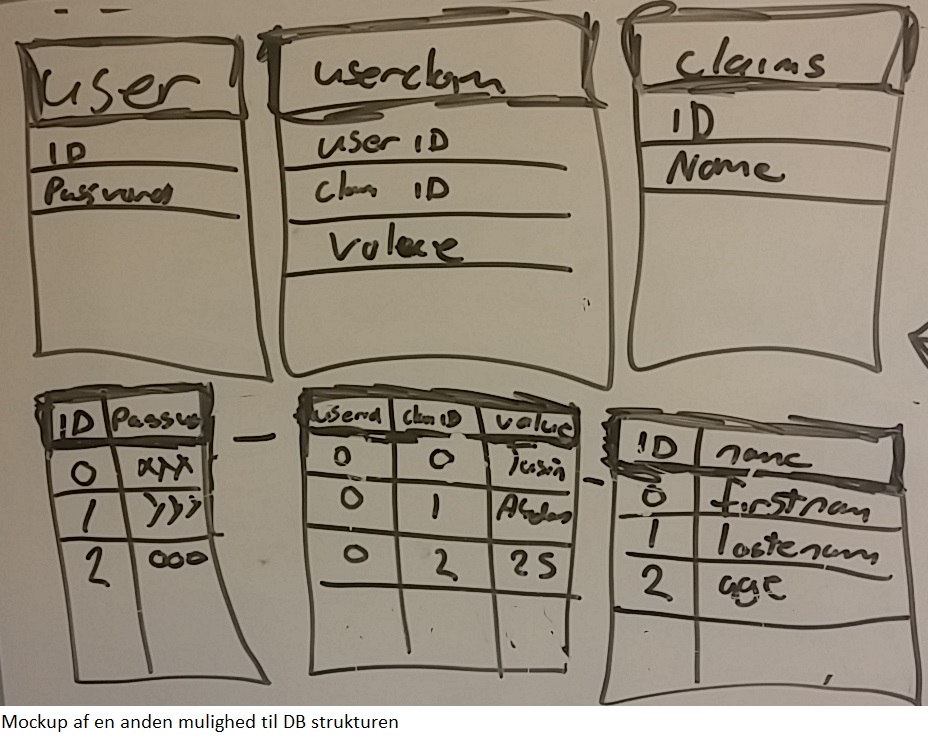 user
ID
Password
userclam
user ID
clam ID
Value
Claims
ID
Name
ID Passw
0 xxx
1 yyy
2 000
userid clam ID value
0 0
0 1
0 2 25
ID name
0 firstnam
1 lastenam
2 age
Mockup af en anden mulighed til DB strukturen